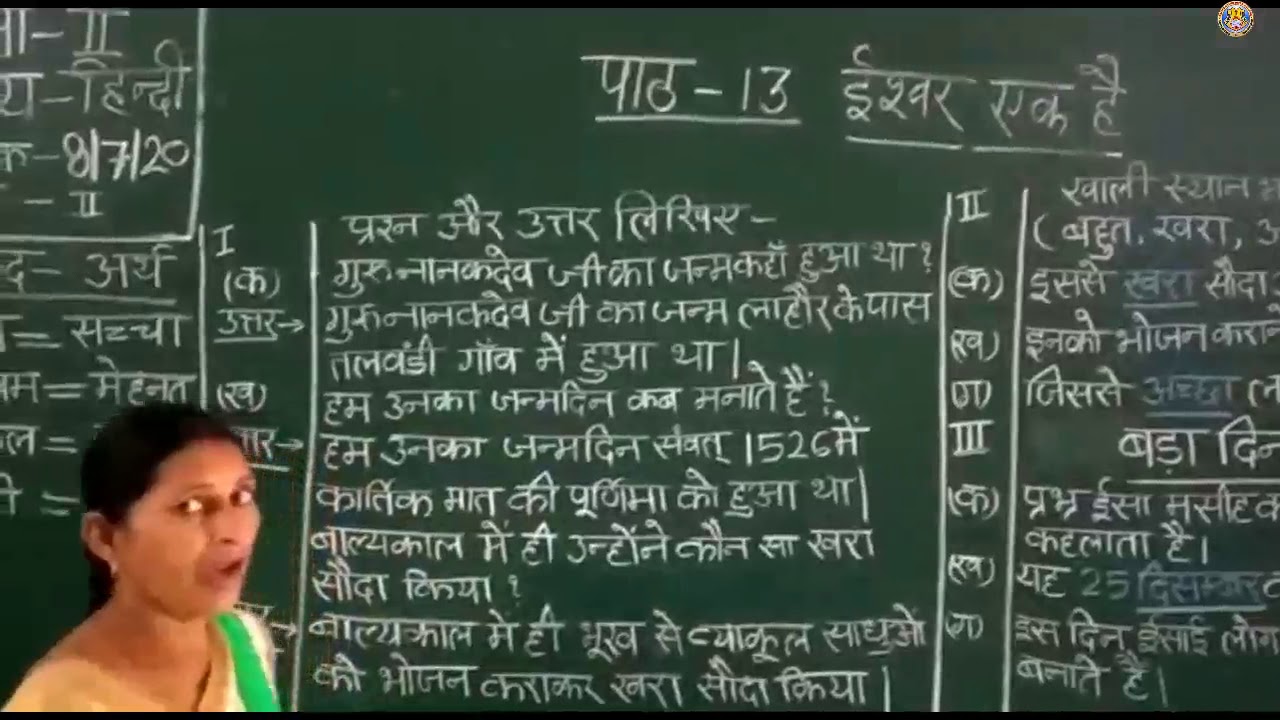 II
हिन्दी
8/7/20
II
अर्थ
= सच्चा
= मेहनत
पाठ - 13 ईश्वर एक है
I प्रश्न और उत्तर लिखिए -
(क) गुरुनानकदेव जी का जन्म कहाँ हुआ था ?
उत्तर→ गुरुनानकदेव जी का जन्म लाहौर के पास
तलवंडी गाँव में हुआ था।
(ख) हम उनका जन्मदिन कब मनाते हैं ?
हम उनका जन्मदिन संवत् 1526 में
कार्तिक मात की पूर्णिमा को हुआ था।
बाल्यकाल में ही उन्होंने कौन सा खरा
सौदा किया ?
बाल्यकाल में ही भूख से व्याकूल साधुओं
को भोजन कराकर खरा सौदा किया।
II खाली स्थान
(बहुत, खरा,
(क) इससे खरा सौदा
(ख) इनको भोजन कराने
(ग) जिससे अच्छा
III बड़ा दिन
(क) प्रभु ईसा मसीह
कहलाता है।
(ख) यह 25 दिसम्बर
(ग) इस दिन ईसाई लोग
बनाते हैं।